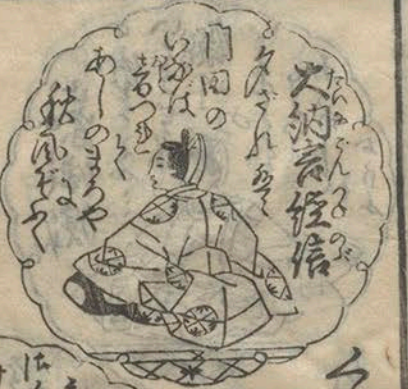 大納言經信
だいなごんつねのぶ
夕ざれば
門田の
いなば
音つれ
て
あしのまろや
に
秋風ぞふく